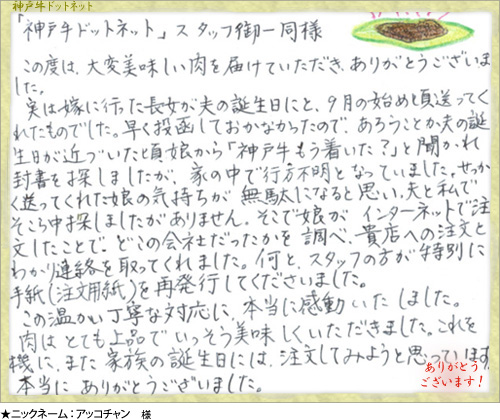 神戸牛ドットネット
「神戸牛ドットネット」スタッフ御一同様
この度は、大変美味しい肉を届けていただき、ありがとうございま
した。
実は嫁に行った長女が夫の誕生日にと、9月の始め頃送ってく
れたものでした。早く投函しておかなかったので、あろうことか夫の誕
生日が近づいた頃娘から「神戸牛もう着いた?」と聞かれ
封書を探しましたが、家の中で行方不明となっていました。せっか
く送ってくれた娘の気持ちが無駄になると思い、夫と私で
そこら中探しましたがありません。そこで娘が インターネットで注
文したことで、どこの会社だったかを調べ、貴店への注文と
わかり連絡を取ってくれました。何と、スタッフの方が特別に
手紙(注文用紙)を再発行してくださいました。
この温かい丁寧な対応に、本当に感動いたしました。
肉はとても上品でいっそう美味しくいただきました。これを
機に、また家族の誕生日には、注文してみようと思っています。
本当に ありがとうございました。
ありがとう
ございます!
★ニックネーム:アッコチャン 様